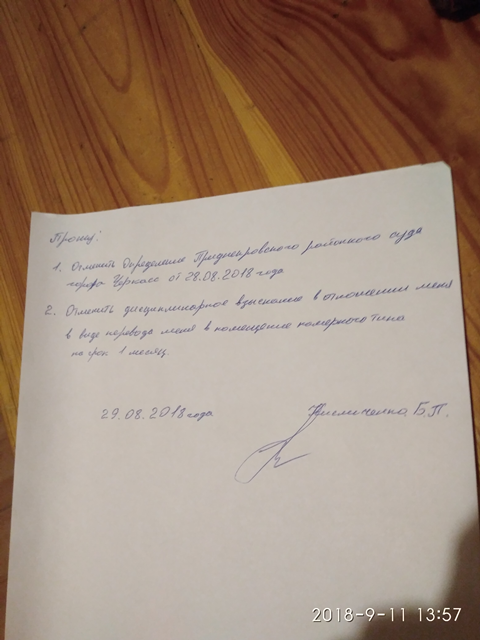 Прошу:
1. Отменить Определение Приднепровского районного суда
города Черкассы от 28.08.2018 года
2. Отменить дисциплинарное взыскание в отношении меня
в виде перевода меня в помещение камерного типа
на срок 1 месяц.
29.08.2018 года Б.П.
2018-9-11 13:57